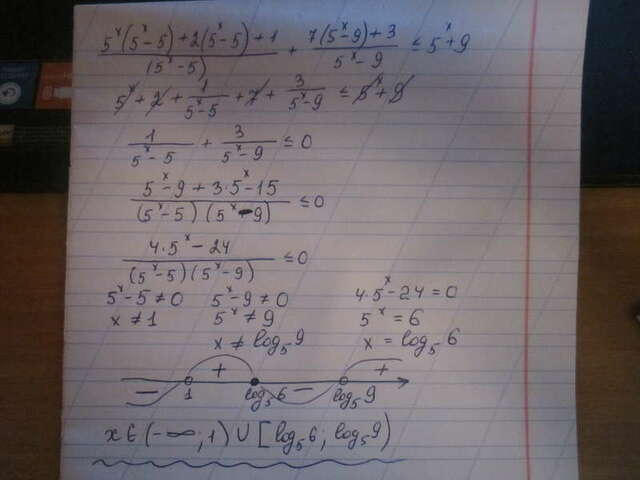 (5^x(5^x-5)+2(5^x-5)+1)/(5^x-5) + (7(5^x-9)+3)/(5^x-9) ≤ 5^x+9
5^x+2+1/(5^x-5)+7+3/(5^x-9) ≤ 5^x+9
1/(5^x-5) + 3/(5^x-9) ≤ 0
(5^x-9+3·5^x-15)/((5^x-5)(5^x-9)) ≤ 0
(4·5^x-24)/((5^x-5)(5^x-9)) ≤ 0
5^x-5≠0 5^x-9≠0 4·5^x-24=0
x≠1 5^x≠9 5^x=6
x≠log₅9 x=log₅6
− + − +
1 log₅6 log₅9
x∈(-∞;1)∪[log₅6; log₅9)